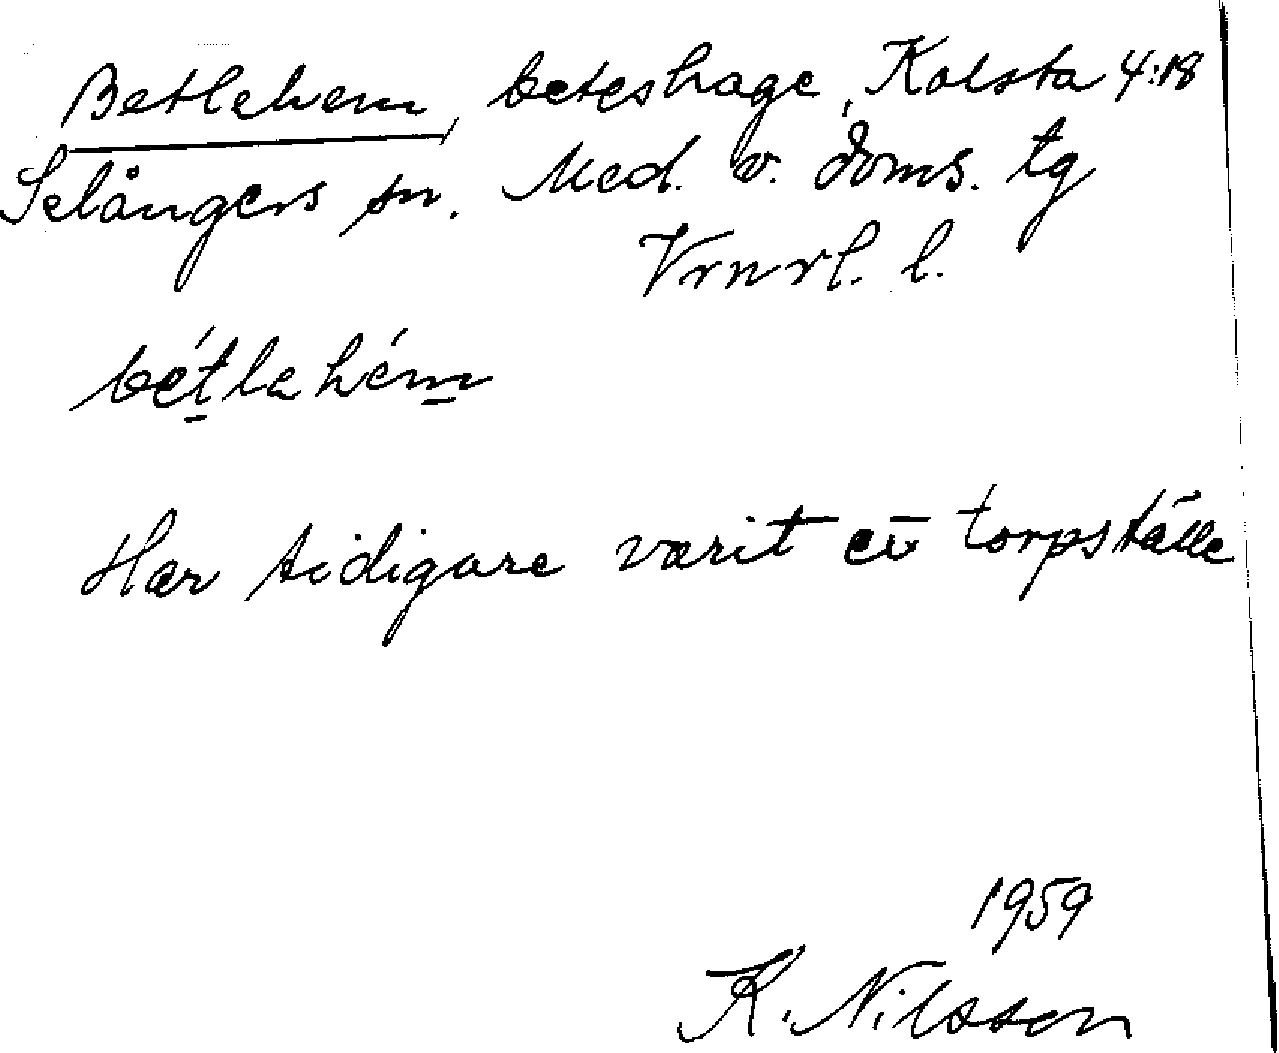 Betlehem, beteshage, Kolsta 4:18
Selångers sn. Med. v. doms. tg
Vrnrl. l.
bétlahém
Har tidigare varit ett torpställe
1959
K. Nilsson